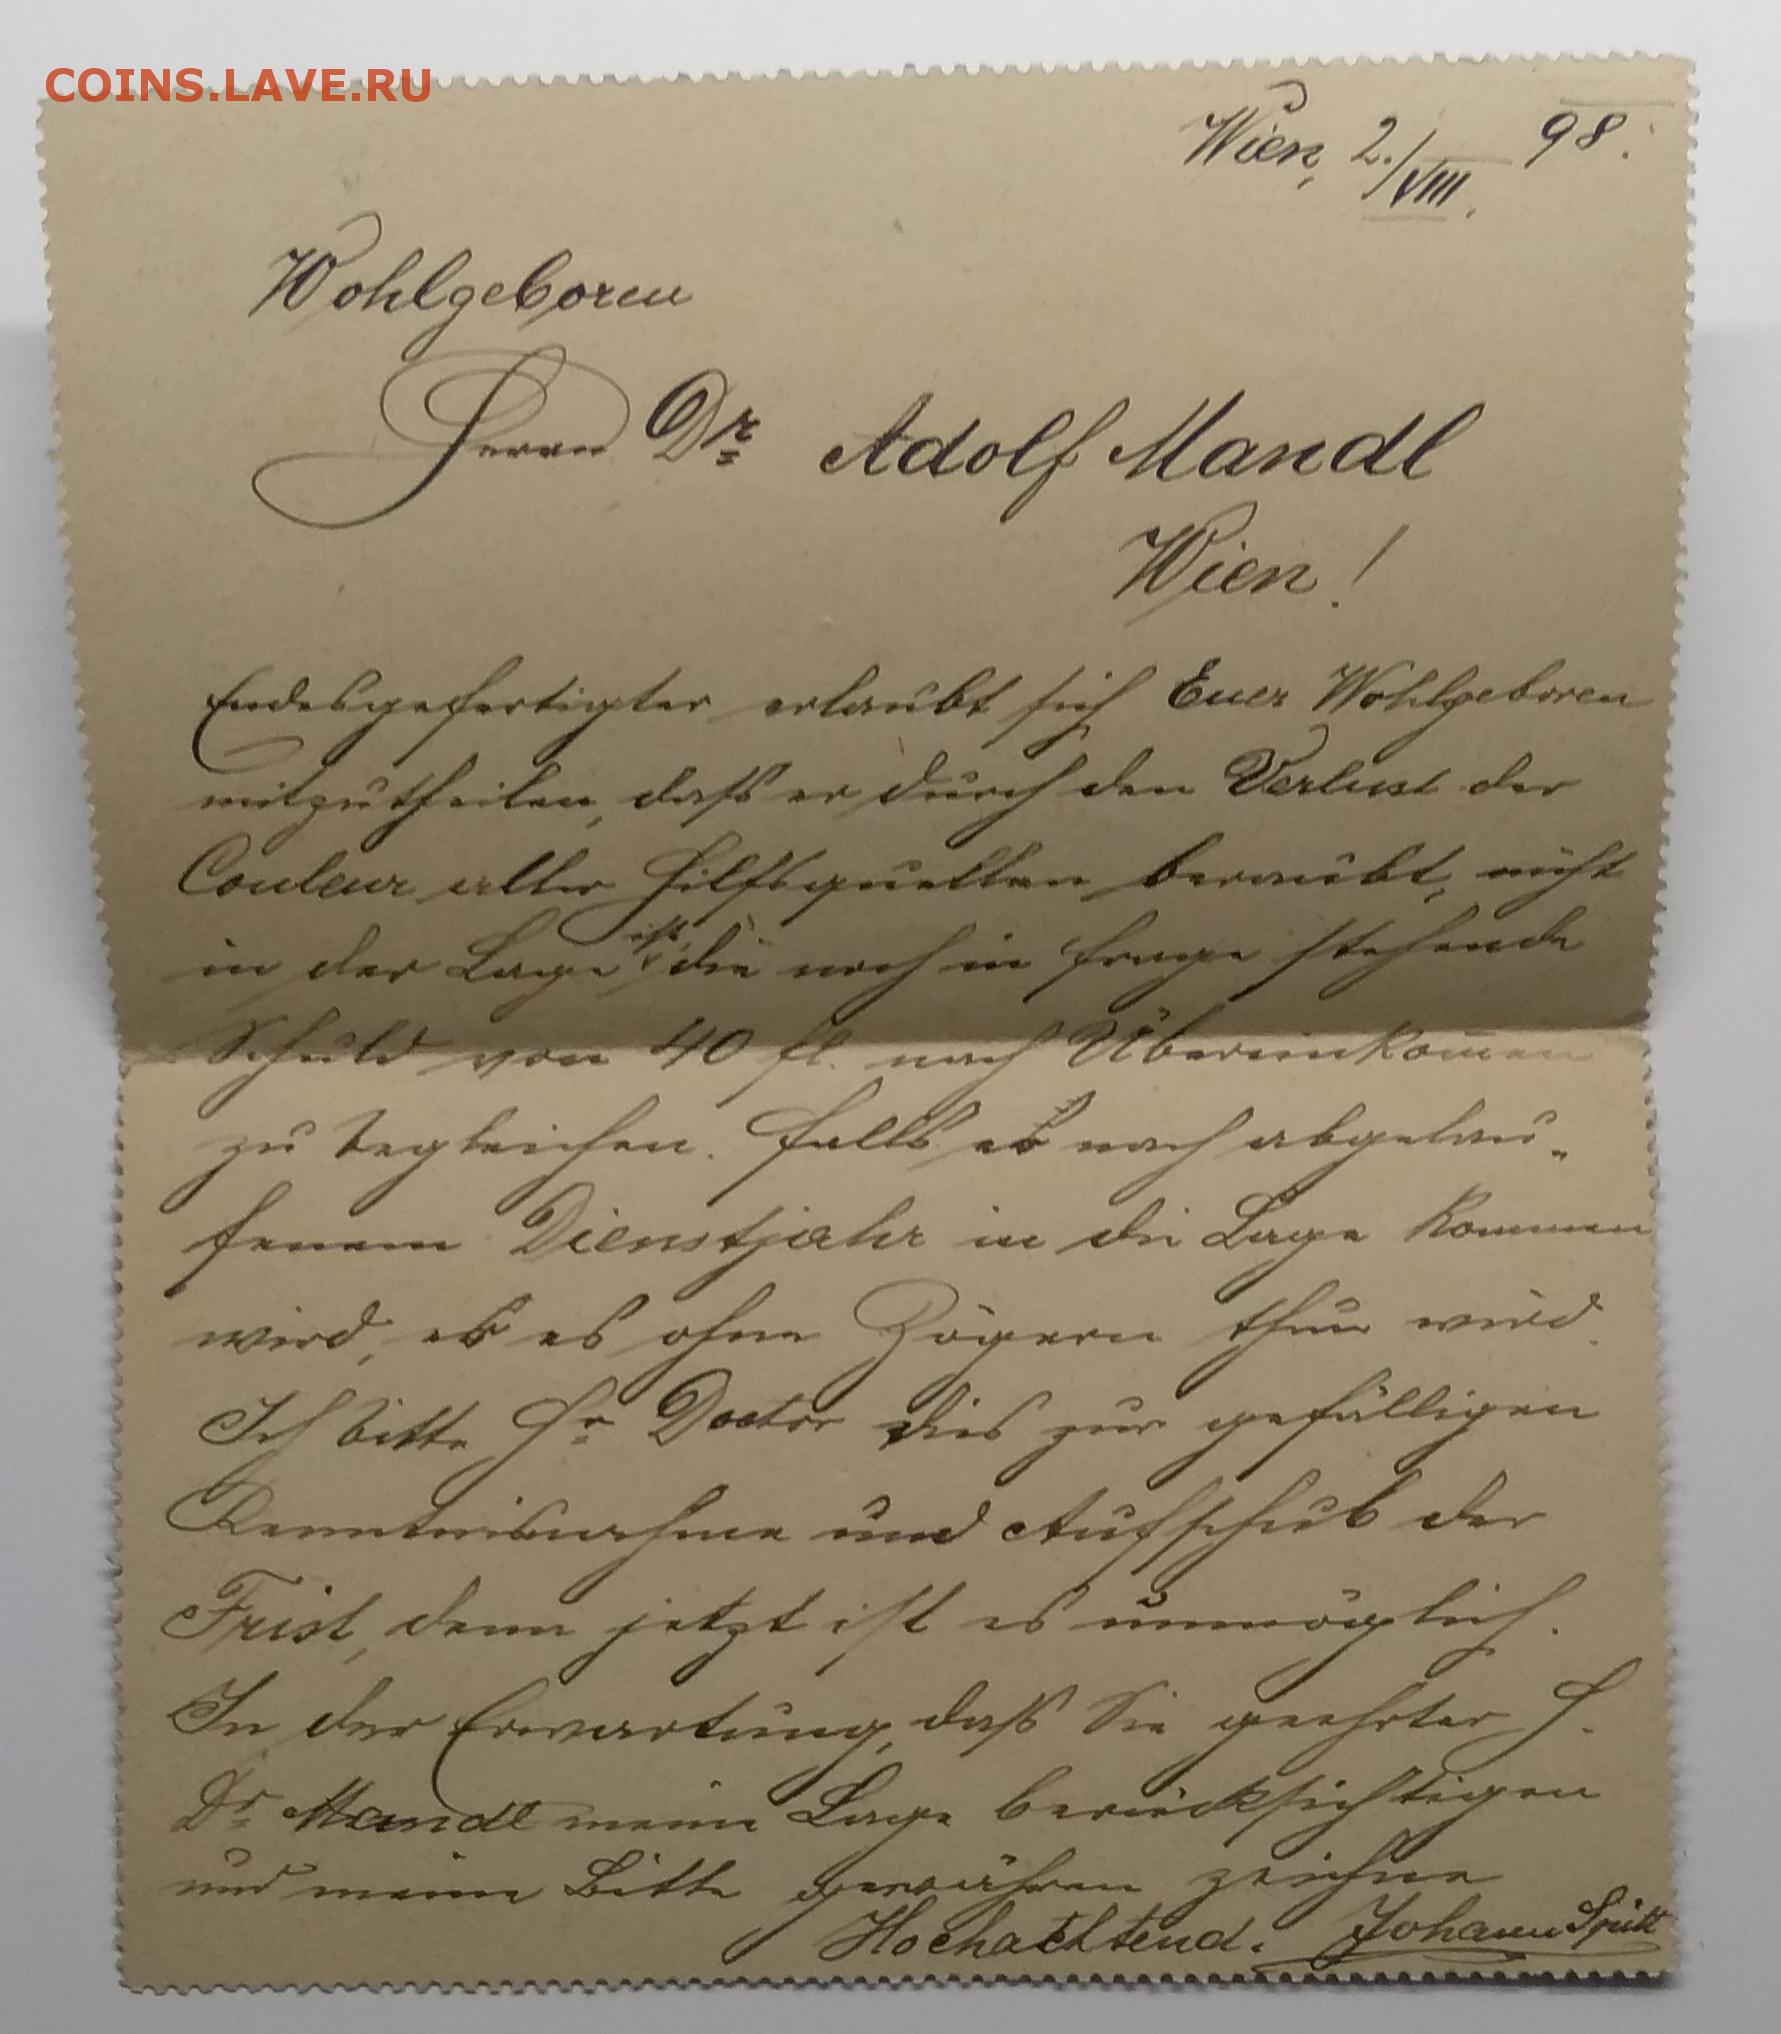 COINS.LAVE.RU
Wien, 2./VIII. 98.
Wohlgeboren
Herrn Dr Adolf Mandl
Wien!
Endesgefertigter erlaubt sich Euer Wohlgeboren
mitzutheilen, daß er durch den Verlust der
Couleur aller Hilfsquellen beraubt, nicht
in der Lage ist, die noch in Frage stehende
Schuld von 40 fl. nach Übereinkommen
zu begleichen. Falls er nach abgelau-
fenem Dienstjahr in die Lage kommen
wird, er es ohne Zögern thun wird.
Ich bitte Hr Doctor dies zur gefälligen
Kenntnisnahme und Aufschub der
Frist, denn jetzt ist es unmöglich.
In der Erwartung, daß Sie geehrter H.
Dr Mandl meine Lage berücksichtigen
und meine Bitte gewähren zeichne
Hochachtend. Johann